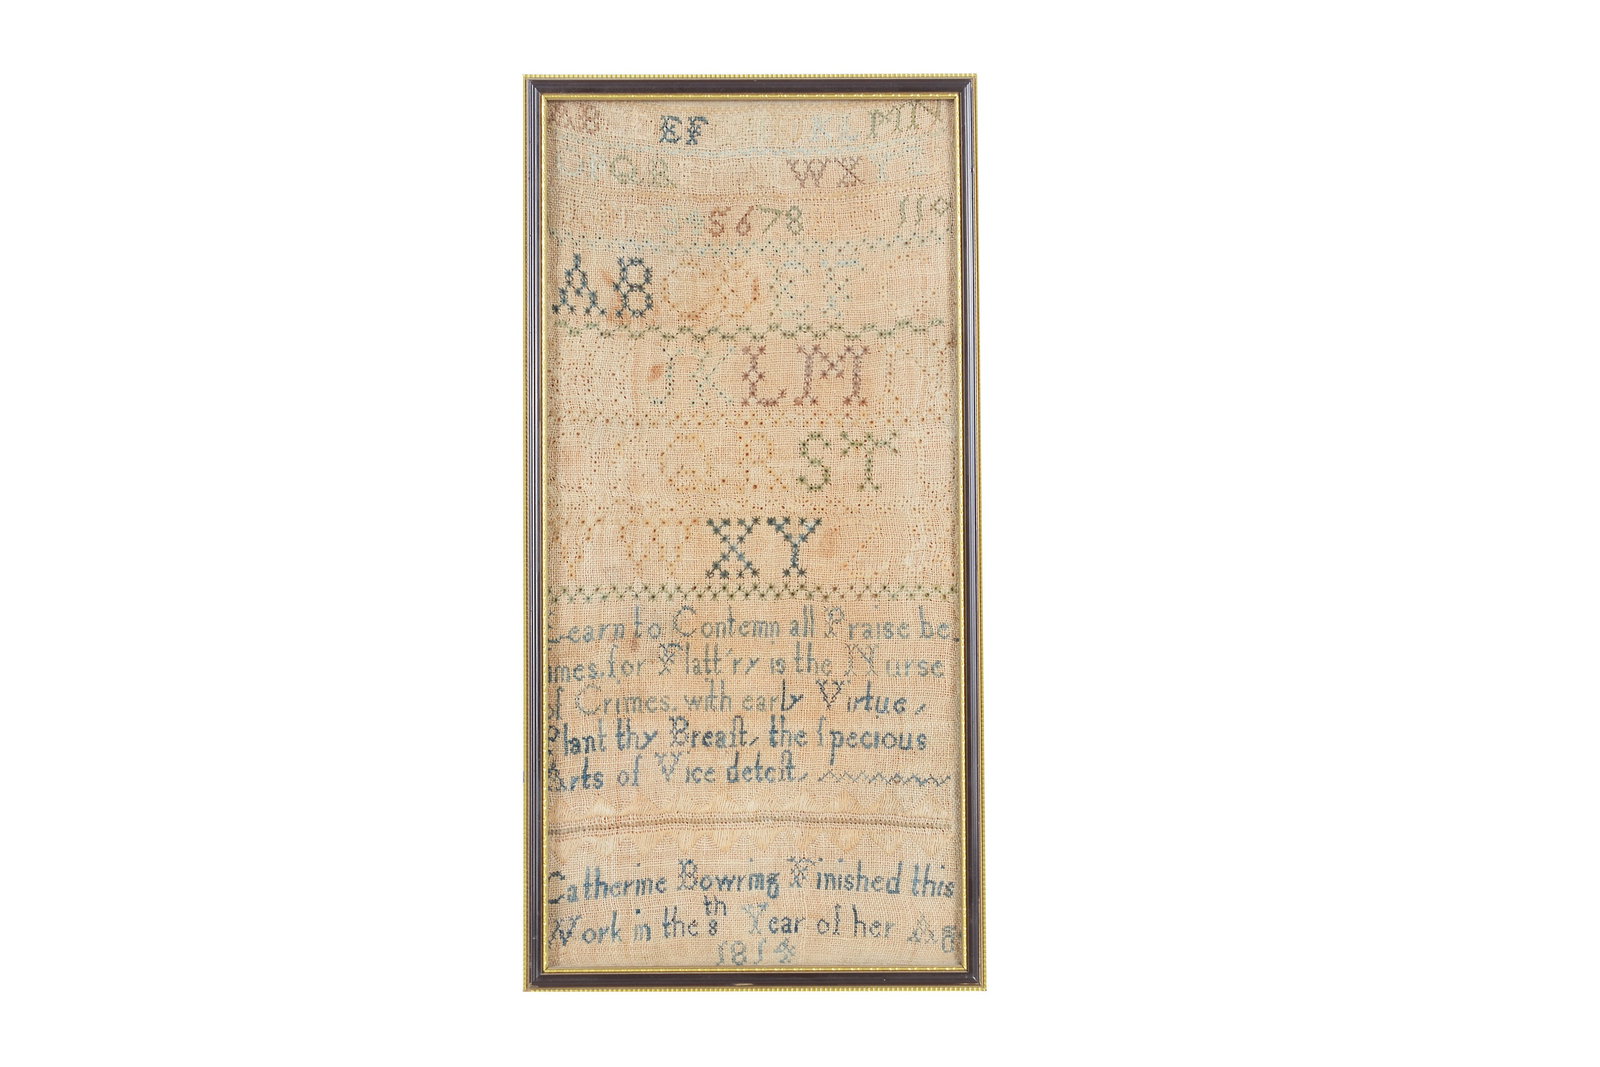 AB EF KL MN
OPQR WX YZ
5678 11
ABCDEF
JKLMN
QRST
VWXY
Learn to Contemn all Praise be
imes, for Flatt'ry is the Nurse
of Crimes. with early Virtue,
Plant thy Breaſt, the ſpecious
Arts of Vice deteſt,
Catherine Bowring Finished this
Work in the 8th Year of her Ag
1814